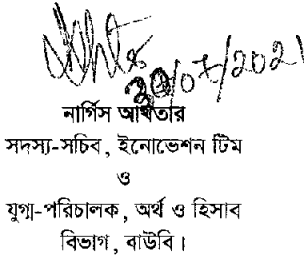 30/07/2021
নার্গিস আখতার
সদস্য-সচিব, ইনোভেশন টিম
ও
যুগ্ম-পরিচালক, অর্থ ও হিসাব
বিভাগ, বাউবি।